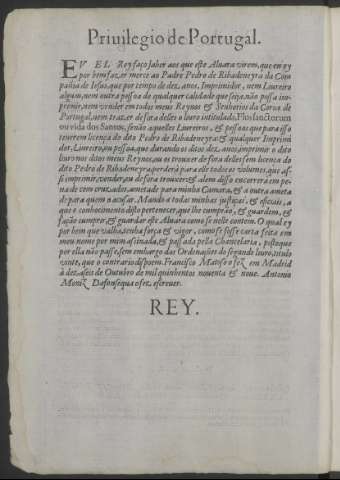 Priuilegio de Portugal.
EV EL Rey faço saber aos que este Aluara virem, que eu ey
por bem faz, er merce ao Padre Pedro de Ribadeneyra da Com
pañia de Iesus, que por tempo de dez, anos, Imprimidor, nem Liureiro
algum, nem outra pessoa de qualquer calidade que seja, não possa im-
primir, nem vender em todos meus Reynos & Senhorios da Coroa de
Portugal, nem traz, er de fora delles o liuro intitulado, Flos sanctorum
ou vida dos Santos, senão aquelles Liureiros, & pessoas que para isso
teuerem licença do dito Pedro de Ribadeneyra: & qualquer Imprimi
dor, Liureiro, ou pessoa, que durando os ditos dez, anos, imprimir o dito
liuro nos ditos meus Reynos, ou os trouxer de fora delles sem licença do
dito Pedro de Ribadeneyra perderà para elle todos os volumes, que as-
si imprimir, vender, ou de fora trouxer: & alem disso encorrera em pe-
na de cem cruzados, ametade para minha Camara, & a outra ameta
de para quem o acusar. Mando a todas minhas justiças, & oficiais, a
que o conhecimento disto pertencer, que lhe cumprão, & guardem, &
fação cumprir, & guardar este Aluara como se nelle contem. O qual ey
por bem que valha, tenha força & vigor, como se fosse carta feita em
meu nome por mim assinada, & passada pella Chancelaria, posto que
por ella não passe, sem embargo das Ordenações do segundo liuro, titulo
vinte, que o contrario dispoem. Francisco Matoso o fez em Madrid
à dez, aseis de Outubro de mil quinhentos nouenta & noue. Antonio
Moniz Dafonsequa o fez, escreuer.
REY.